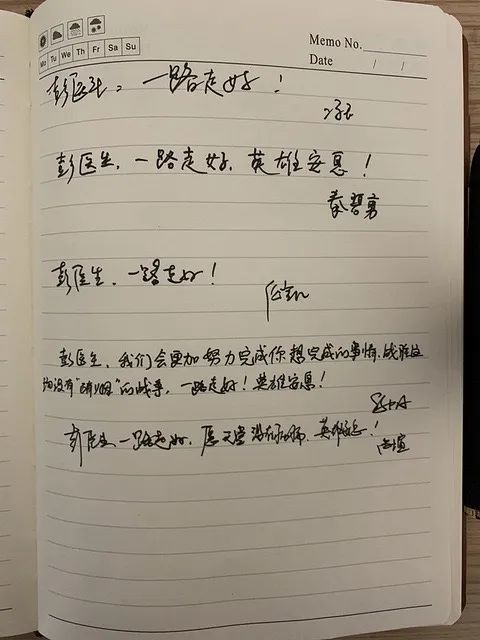 Memo No.
Mo Tu We Th Fr Sa Su
Date / /
彭医生，一路走好！
彭医生，一路走好，英雄安息！
秦碧勇
彭医生，一路走好！
彭医生，我们会更加努力完成你想完成的事情，战胜这
场没有"硝烟"的战争，一路走好！英雄安息！
彭医生一路走好，愿天堂没有病痛，英雄安息！